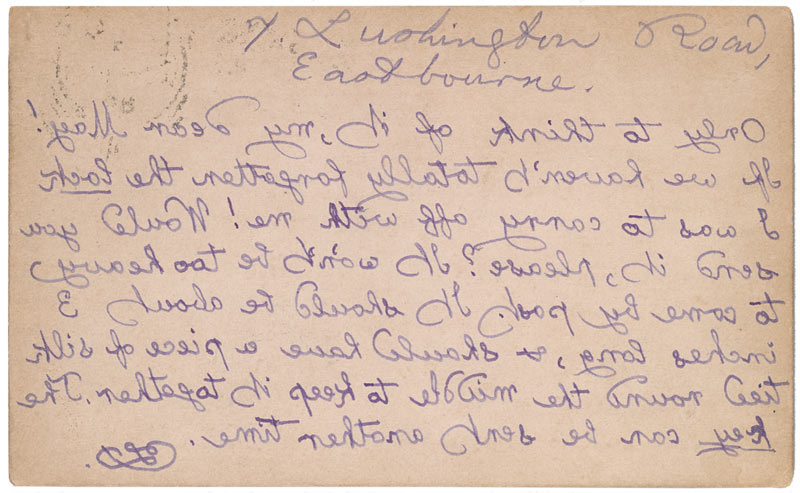 7 Lushington Road,
Eastbourne.
Only to think of it, my dear May!
If we haven't totally forgotten the lock
I was to carry off with me! Would you
send it, please? It won't be too heavy
to come by post. It should be about 3
inches long, & should have a piece of silk
tied round the middle to keep it together. The
key can be sent another time.
CLD.